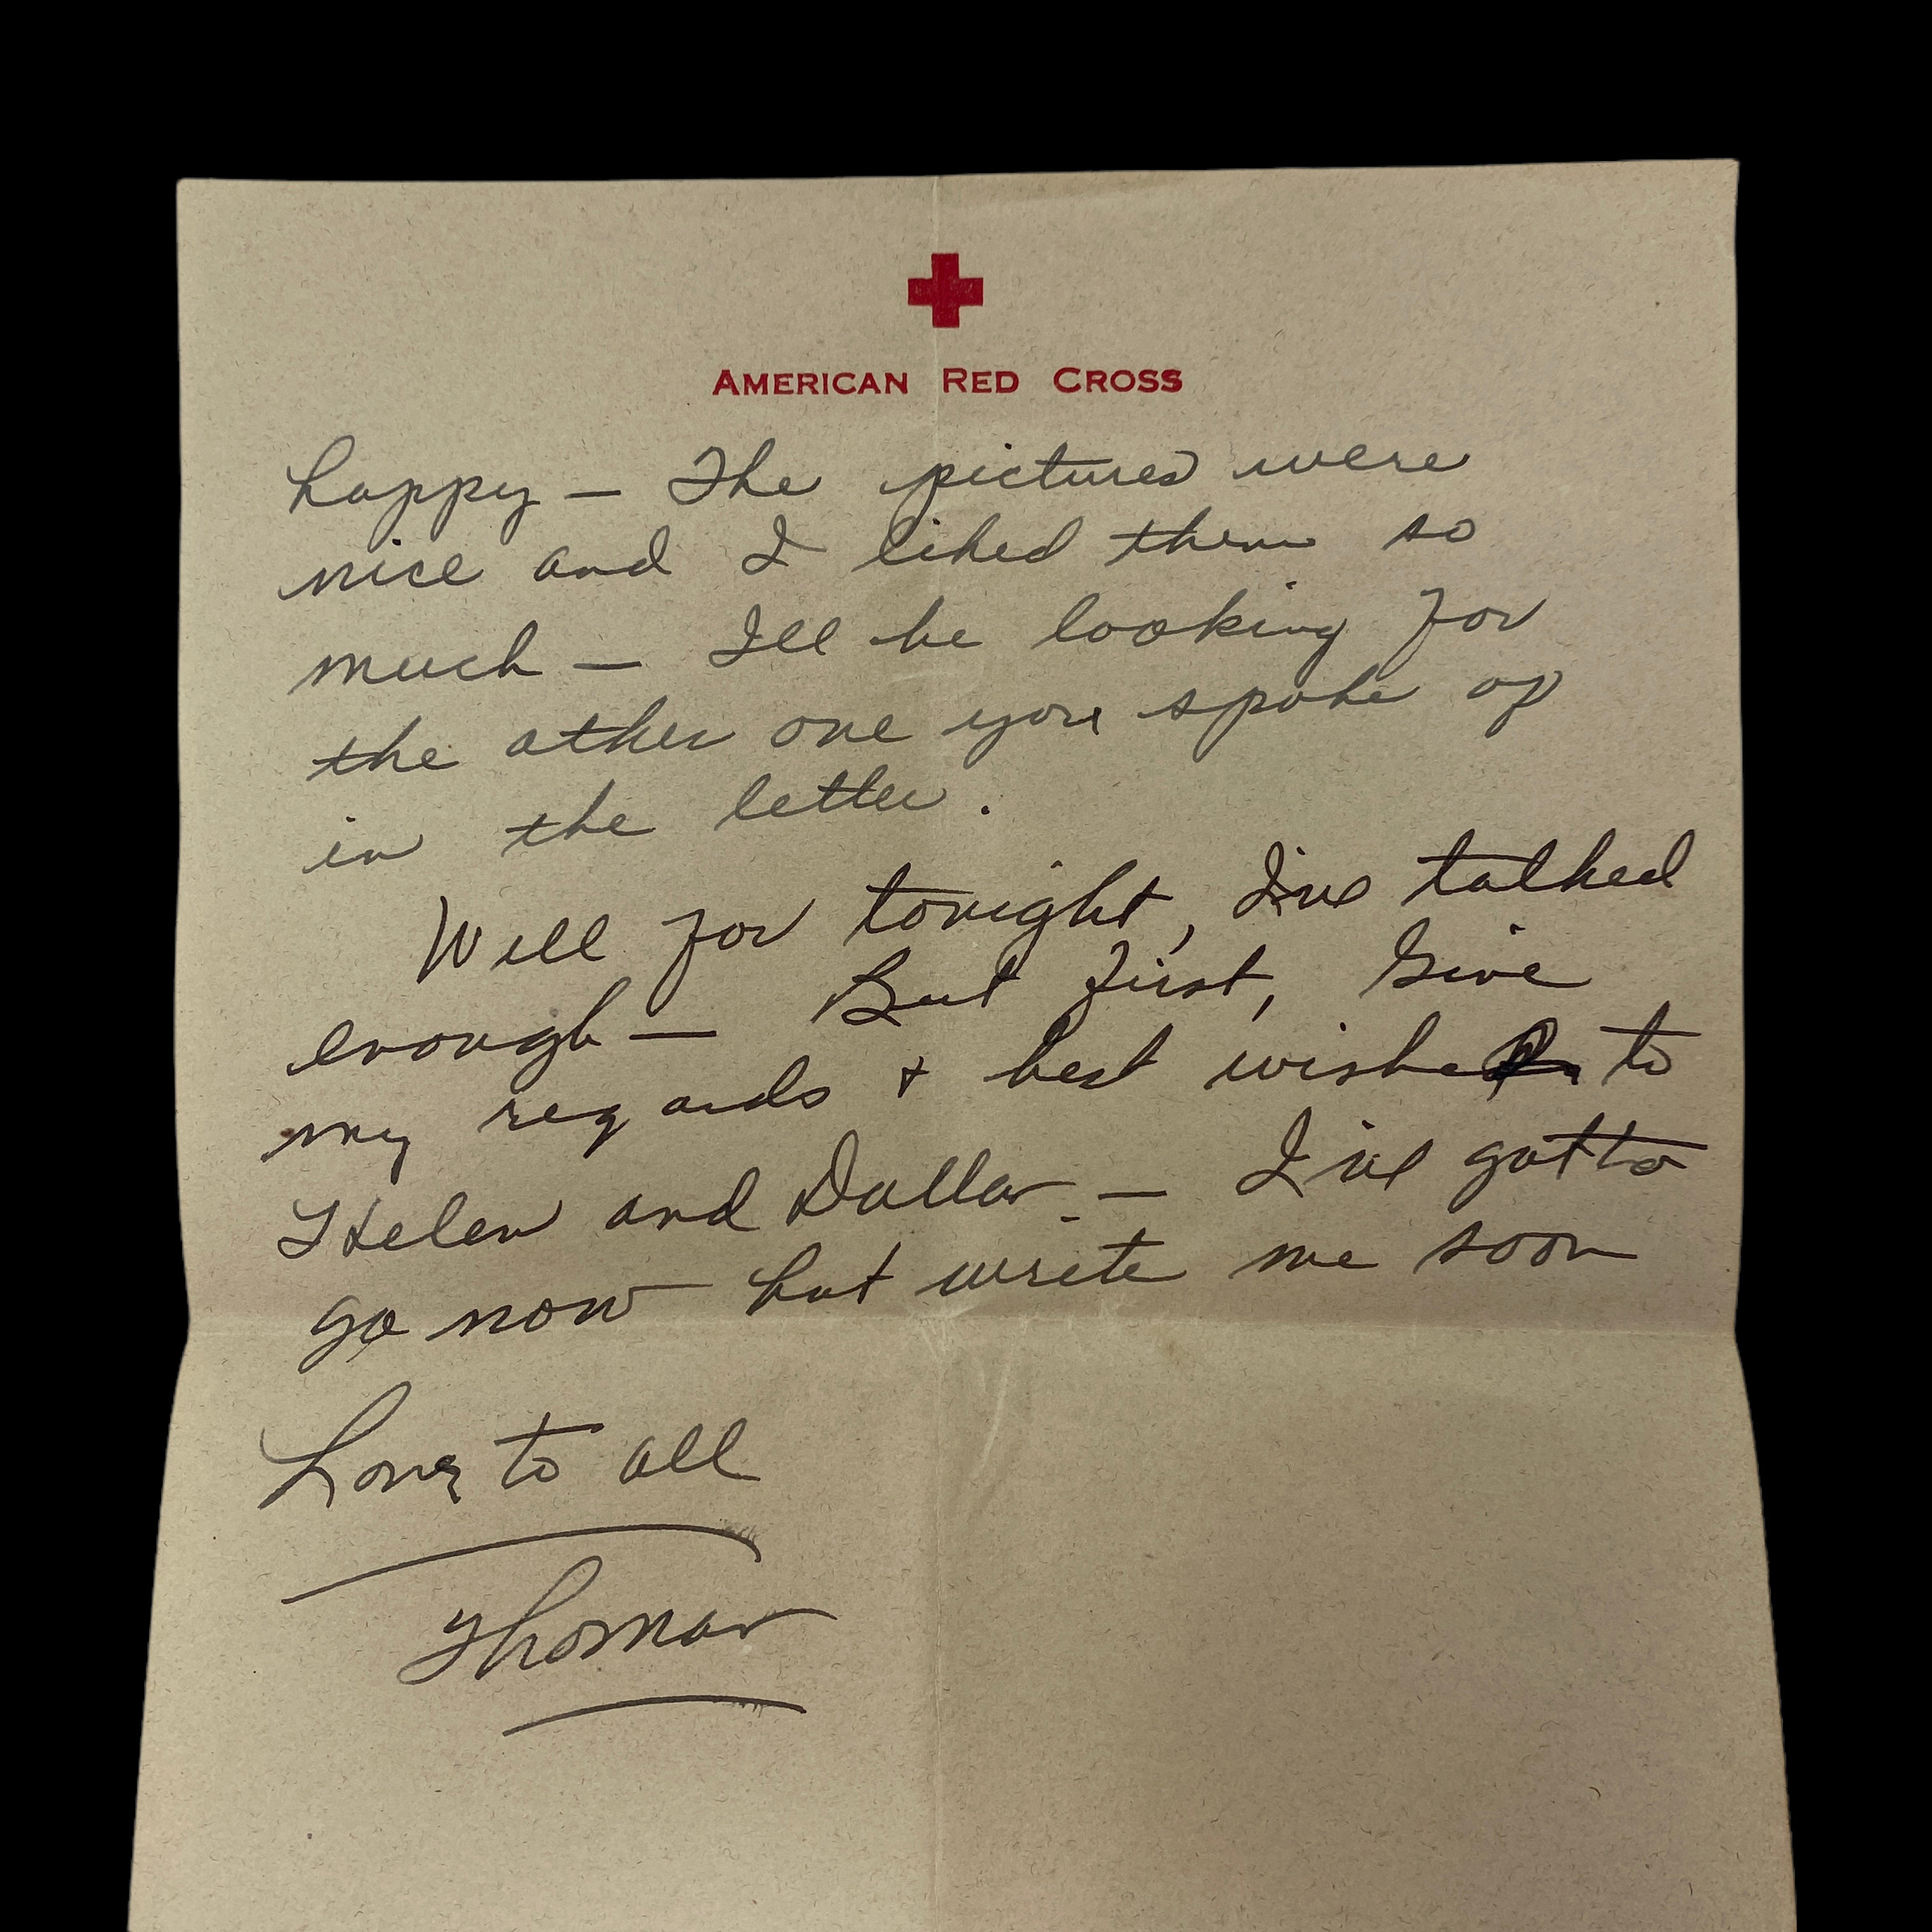 AMERICAN RED CROSS
happy — The pictures were
nice and I liked them so
much — I'll be looking for
the other one you spoke of
in the letter.
Well for tonight, I've talked
enough — But first, Give
my regards + best wishes to
Helen and Dallas — I've gotto
go now but write me soon
Love to all
Thomas